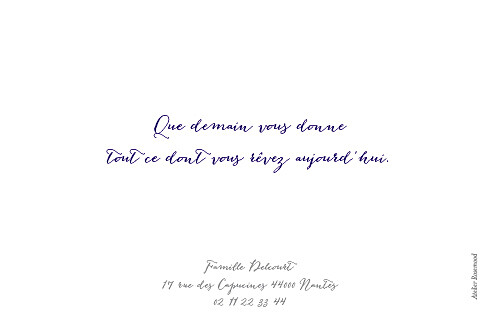 Que demain vous donne
tout ce dont vous rêvez aujourd'hui.
Famille Delcourt
17 rue des Capucines 44000 Nantes
02 11 22 33 44
Atelier Rosemood